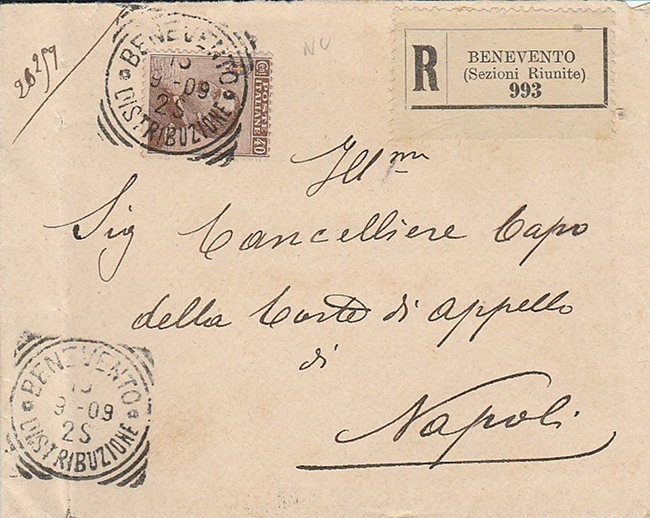 26259
NU
BENEVENTO
9 - 09
2S
DISTRIBUZIONE
POSTE
ITALIANE
40
R
BENEVENTO
(Sezioni Riunite)
993
Ill.mo
Sig Cancelliere Capo
della Corte di Appello
di
Napoli
BENEVENTO
9 - 09
2S
DISTRIBUZIONE